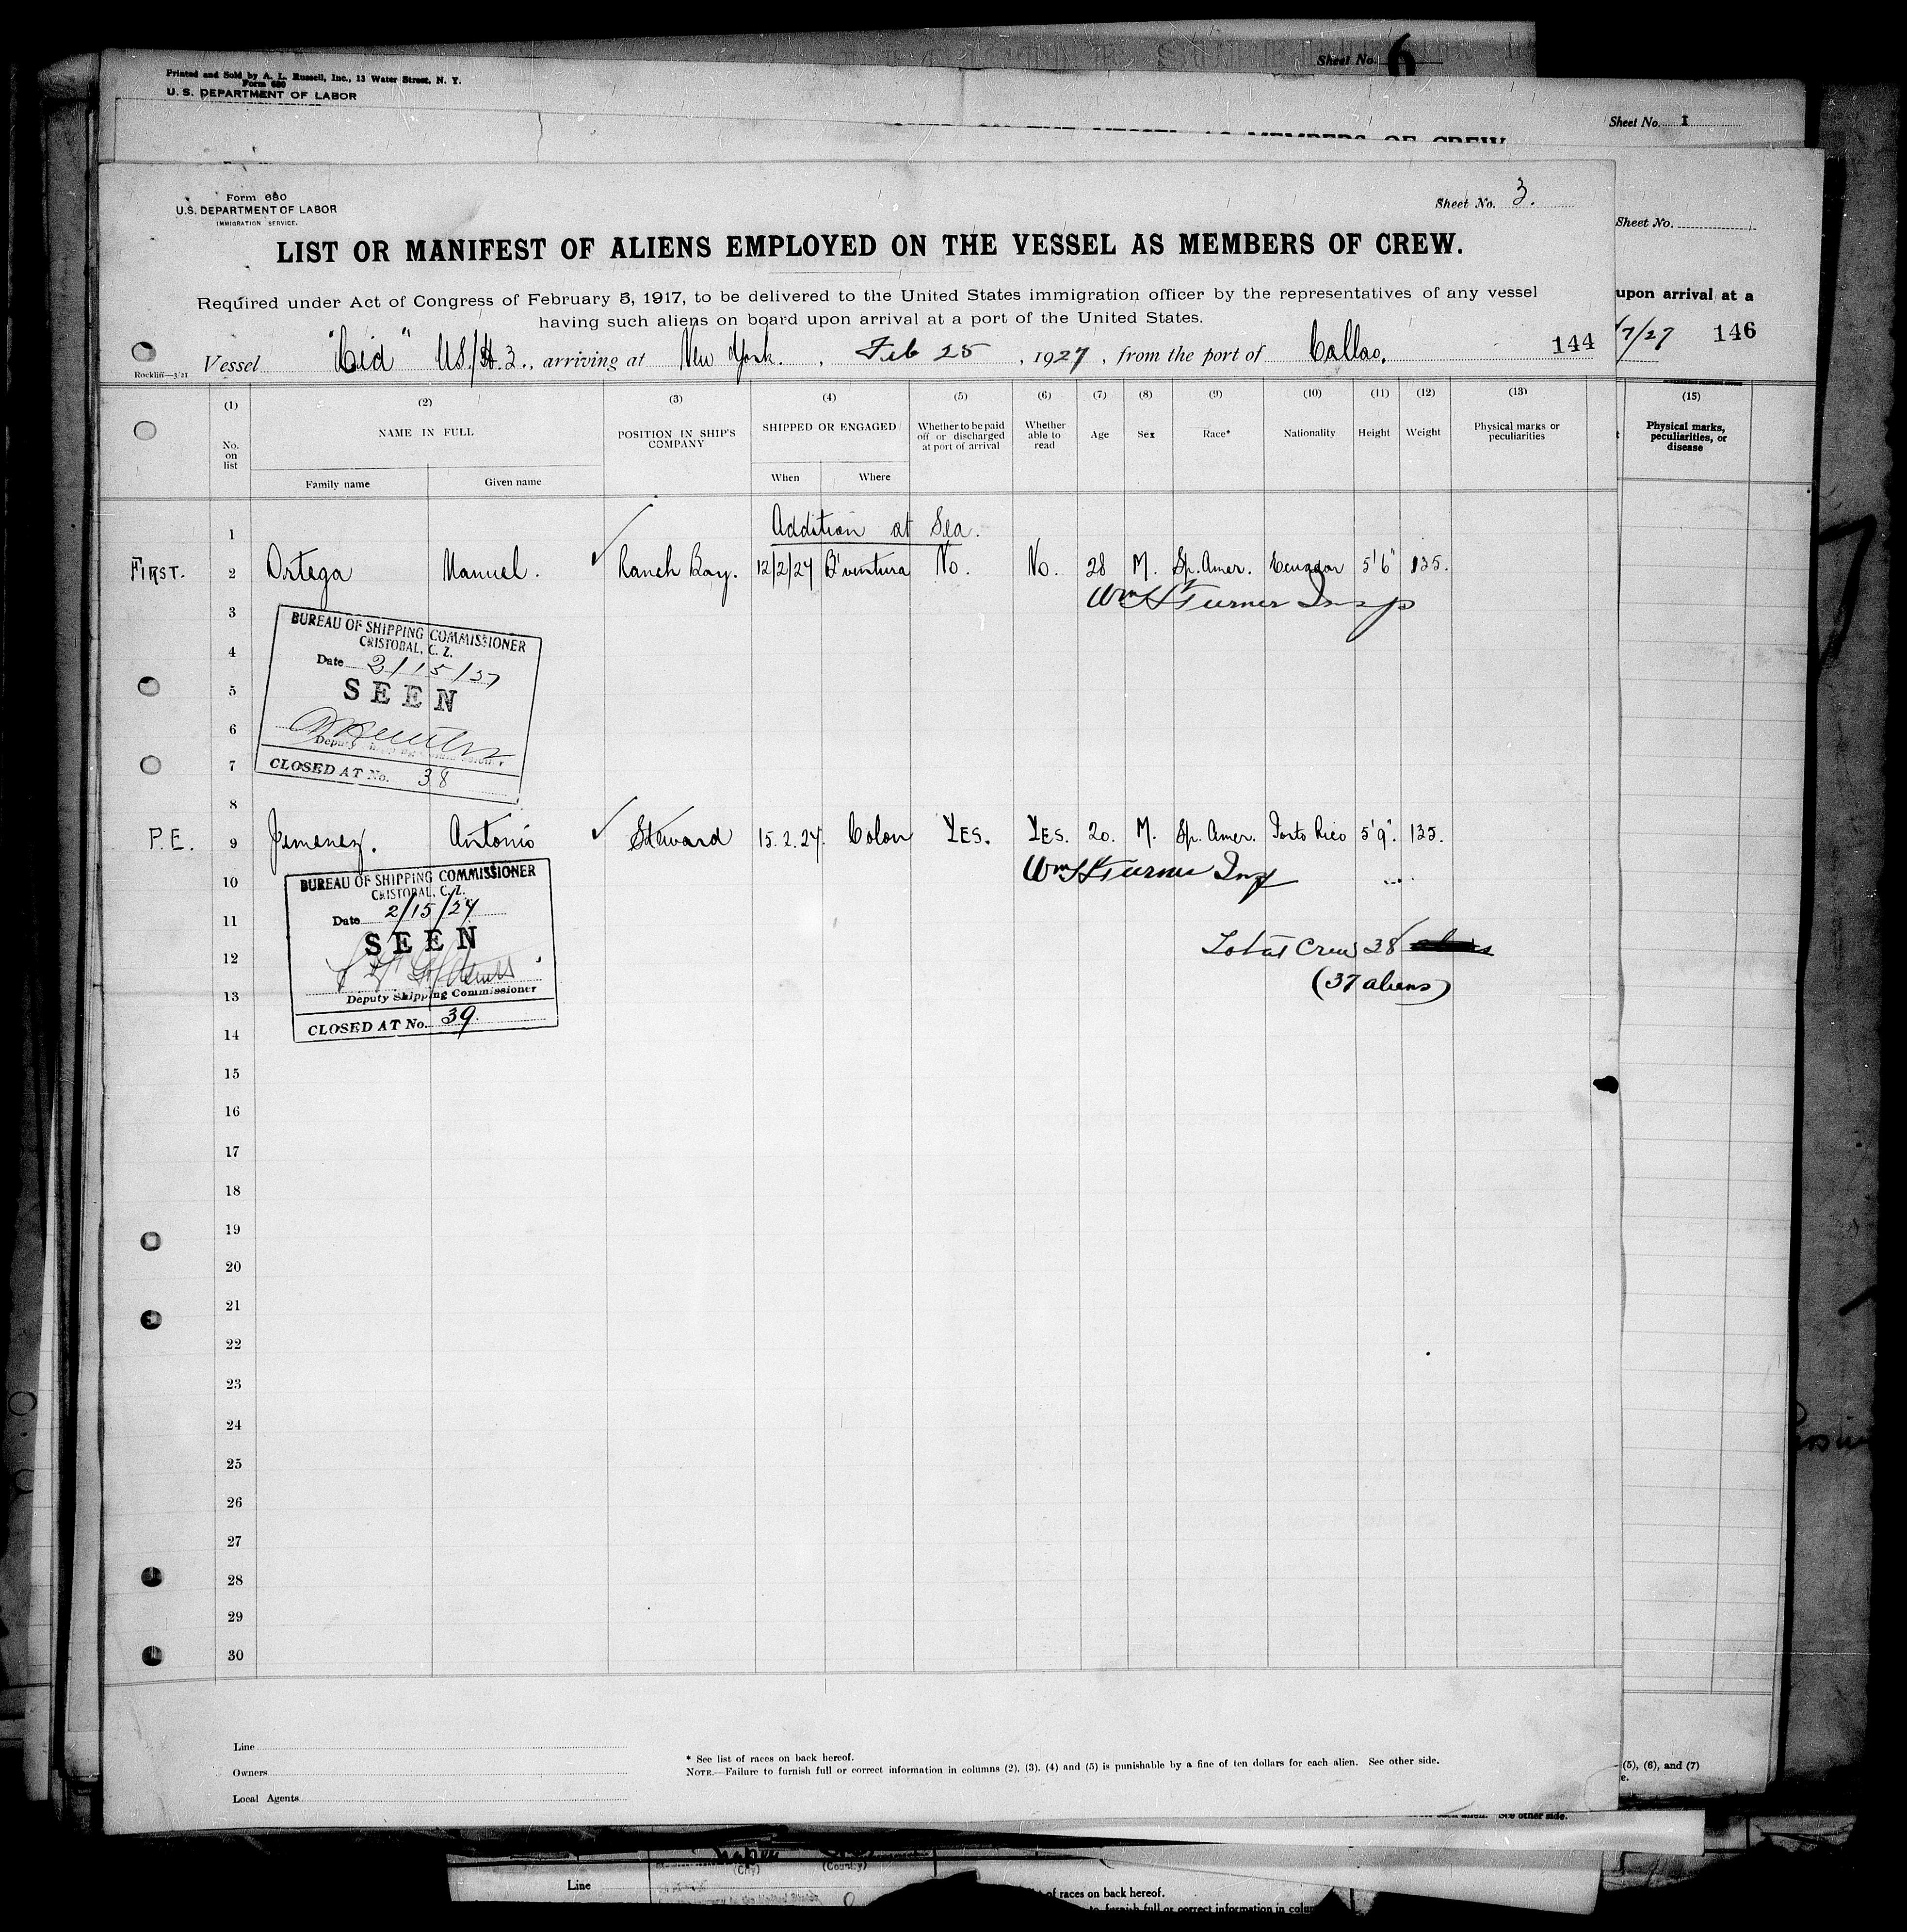 Sheet No. 6
Printed and Sold by A. L. Russell, Inc., 13 Water Street, N. Y.
Form 680
U. S. DEPARTMENT OF LABOR
Sheet No. 1
MEMBERS OF CREW
Form 680
U.S. DEPARTMENT OF LABOR
IMMIGRATION SERVICE.
Sheet No. 3.
Sheet No.
LIST OR MANIFEST OF ALIENS EMPLOYED ON THE VESSEL AS MEMBERS OF CREW.
Required under Act of Congress of February 5, 1917, to be delivered to the United States immigration officer by the representatives of any vessel
having such aliens on board upon arrival at a port of the United States.
upon arrival at a
7/27 146
Rockliff—3/21
Vessel "Cid" , arriving at New York. , Feb 25 , 1927 , from the port of Callao. 144
(1) (2) (3) (4) (5) (6) (7) (8) (9) (10) (11) (12) (13) (15)
No. on list NAME IN FULL POSITION IN SHIP'S COMPANY SHIPPED OR ENGAGED Whether to be paid off or discharged at port of arrival Whether able to read Age Sex Race* Nationality Height Weight Physical marks or peculiarities Physical marks, peculiarities, or disease
Family name Given name When Where
1 Addition at Sea.
FIRST. 2 Ortega Manuel. Ranch Boy. 12/2/27 B'ventura No. No. 28 M. Sp. Amer. Ecuador 5'6" 135.
3 Wm H Turner Insp
BUREAU OF SHIPPING COMMISSIONER
CRISTOBAL, C. Z.
4
Date 2/15/27
5 SEEN
6
Deputy
7 CLOSED AT No. 38
8
P.E. 9 Jimenez. Antonio Steward 15.2.27. Colon YES. YES. 20. M. Sp. Amer. Porto Rico 5'9". 135.
10 Wm H Turner Insp
BUREAU OF SHIPPING COMMISSIONER
CRISTOBAL, C. Z.
11 Date 2/15/27
SEEN
12 Total Crew 38
13 (37 aliens)
Deputy Shipping Commissioner
14 CLOSED AT No. 39.
15
16
17
18
19
20
21
22
23
24
25
26
27
28
29
30
Line
* See list of races on back hereof.
Owners
NOTE.—Failure to furnish full or correct information in columns (2), (3), (4) and (5) is punishable by a fine of ten dollars for each alien. See other side.
(5), (6), and (7)
Local Agents
See other side.
(City) (Country)
Line
of races on back hereof.
to furnish full or correct information in